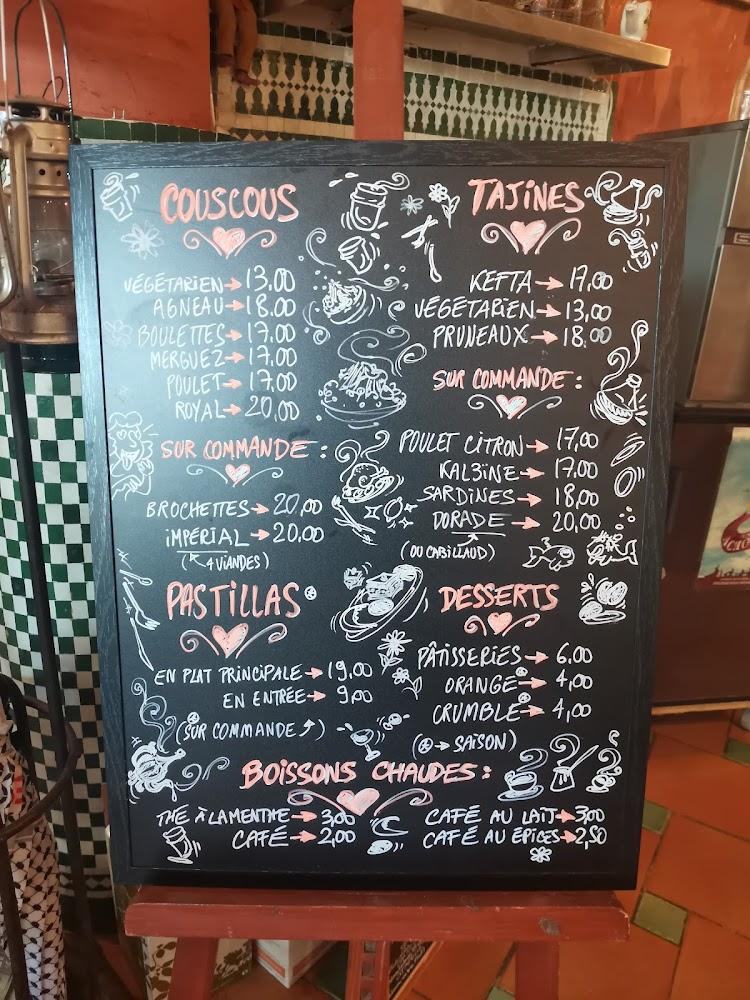 COUSCOUS
VÉGÉTARIEN → 13,00
AGNEAU → 18.00
BOULETTES → 17.00
MERGUEZ → 17,00
POULET → 17,00
ROYAL → 20,00
SUR COMMANDE :
BROCHETTES → 20,00
IMPÉRIAL → 20,00
(4 VIANDES)
PASTILLAS*
EN PLAT PRINCIPALE → 19,00
EN ENTRÉE → 9,00
(* SUR COMMANDE)
TAJINES
KEFTA → 17,00
VÉGÉTARIEN → 13,00
PRUNEAUX → 18.00
SUR COMMANDE :
POULET CITRON → 17,00
KAL3INE → 17,00
SARDINES → 18,00
DORADE → 20,00
(OU CABILLAUD)
DESSERTS
PÂTISSERIES → 6.00
ORANGE* → 4,00
CRUMBLE* → 4,00
(* → SAISON)
BOISSONS CHAUDES :
THÉ À LA MENTHE → 3,00
CAFÉ → 2,00
CAFÉ AU LAIT → 3,00
CAFÉ AU ÉPICES → 2,50